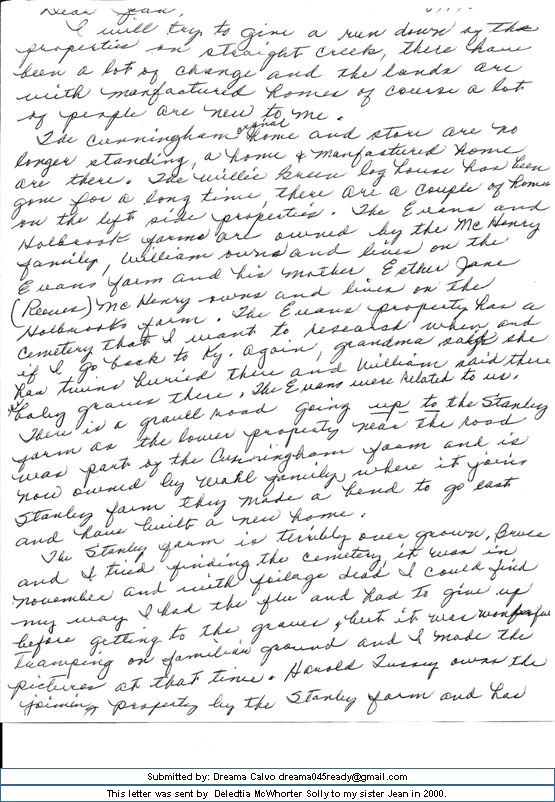 Dear Jean,
I will try to give a run down of the
properties on straight creek, there have
been a lot of change and the lands are
with manfactured homes of course a lot
of people are new to me.
The Cunningham orginal home and store are no
longer standing, a home & manfactured home
are there. The Willie Green log house has been
gone for a long time, there are a couple of homes
on the left side properties. The Evans and
Holbrook farms are owned by the McHenry
family, William owns and lives on the
Evans farm and his mother Esther Jane
(Reeves) McHenry owns and lives on the
Holbrooks farm. The Evans property has a
cemetery that I want to research when and
if I go back to Ky. again, grandma said she
has twins buried there and William said there
baby graves there. The Evans were related to us.
There is a gravell road going up to the Stanley
farm as the lower property near the road
was part of the Cunningham farm and is
now owned by Wahl family, where it joins
Stanley farm they made a bend to go east
and have built a new home.
The Stanley farm is terribly over grown, Bruce
and I tried finding the cemetery, it was in
november and with foilage dead I could find
my way. I had the flu and had to give up
before getting to the graves, but it was wonderful
tramping on familiar ground and I made the
pictures at that time. Harold Tussey owns the
joining property by the Stanley farm and has
Submitted by: Dreama Calvo dreama045ready@gmail.com
This letter was sent by Deledtia McWhorter Solly to my sister Jean in 2000.